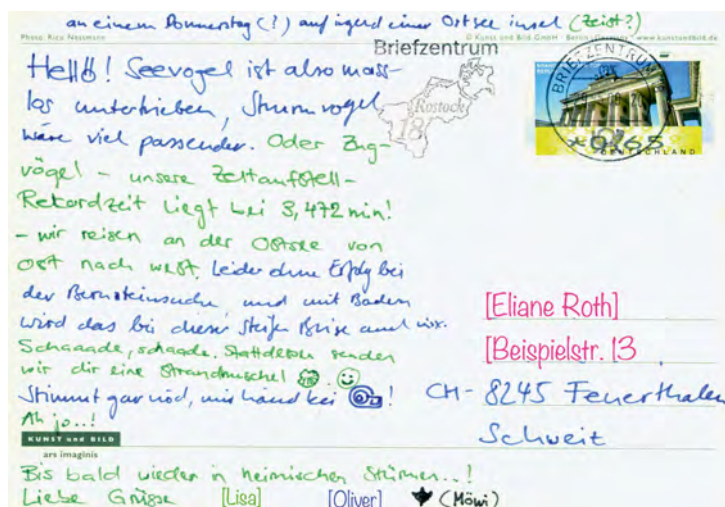 an einem Donnerstag (?) auf irgend einer Ostsee insel (Zeist?)
Photo: Rico Nessmann
© Kunst und Bild GmbH · Berlin · Germany · www.kunstundbild.de
Briefzentrum
Rostock
18
BRIEFZENTRUM
DEUTSCHLAND
Hellö! Seevogel ist also mass-
los untertrieben, Sturmvogel
wäre viel passender. Oder Zug-
vögel – unsere Zeltaufstell-
Rekordzeit liegt bei 3,472 min!
– wir reisen an der Ostsee von
Ost nach west. Leider ohne Erfolg bei
der Bernsteinsuche, und mit Baden
wird das bei dieser steifen Brise auch nix.
Schaaade, schaade. Stattdessen senden
wir dir eine Strandmuschel
Stimmt gar nöd, mir händ kei !
Ah jo..!
KUNST und BILD
ars imaginis
Bis bald wieder in heimischen Stürmen..!
Liebe Grüsse [Lisa] [Oliver] (Möwi)
[Eliane Roth]
[Beispielstr. 13
CH- 8245 Feuerthalen
Schweit